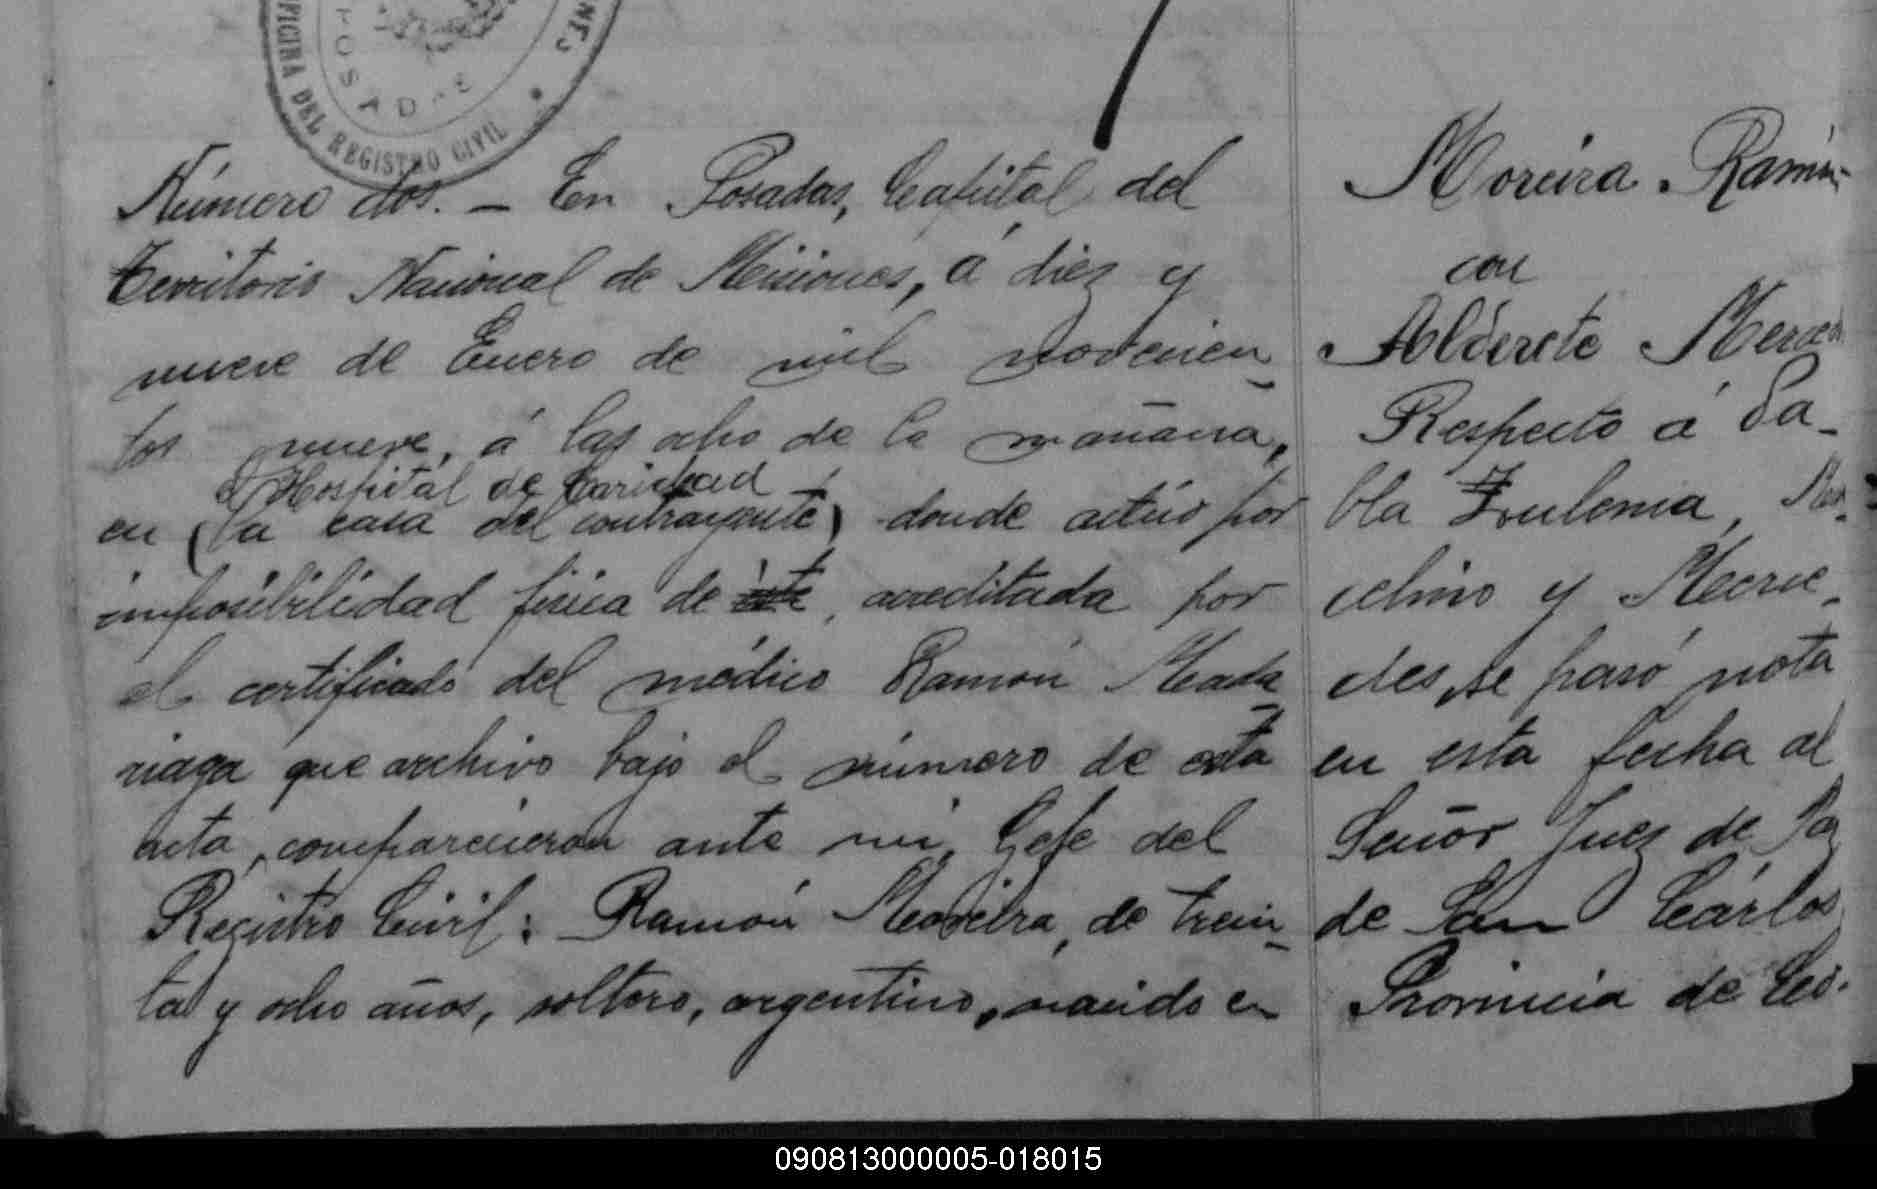 OFICINA DEL REGISTRO CIVIL
POSADAS
Número dos. — En Posadas, Capital del
Territorio Nacional de Misiones, á diez y
nueve de Enero de mil novecien_
tos nueve, á las ocho de la mañana,
Hospital de Caridad
en (la casa del contrayente) donde actúo por
imposibilidad fisica de este, acreditada por
el certificado del médico Ramón Mada_
riaga que archivo bajo el número de esta
acta, comparecieron ante mi, Gefe del
Registro Civil: Ramón Moreira, de trein_
ta y ocho años, soltero, argentino, nacido en
Moreira Ramón
con
Alderete Merced
Respecto á Pa_
bla Zulema, Mar_
celino y Merce_
des, se pasó nota
en esta fecha al
Señor Juez de Paz
de San Cárlos
Provincia de Co.
090813000005-018015